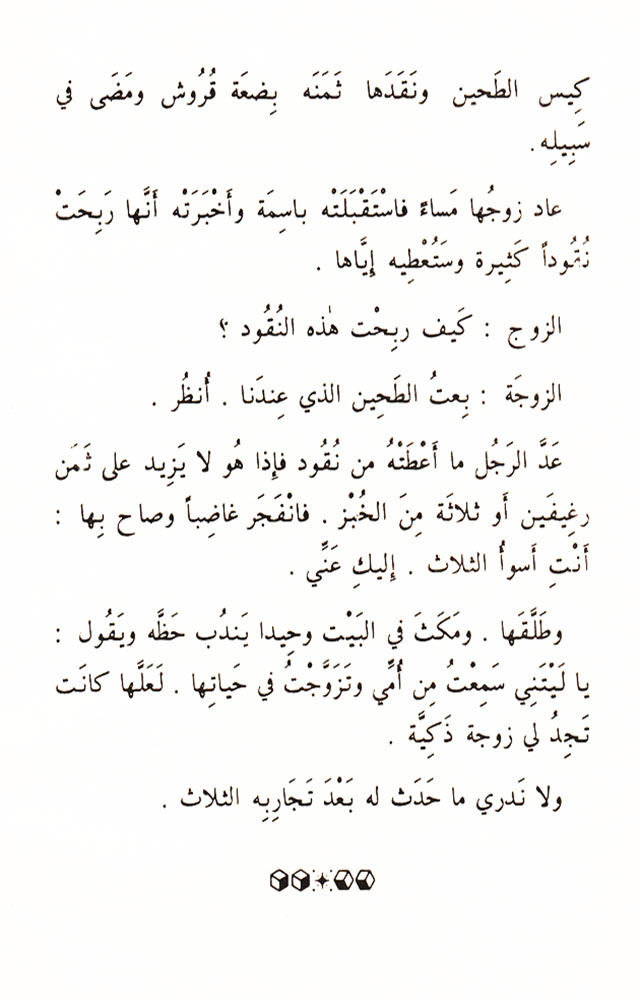 كِيس الطَحين ونَقَدَها ثَمَنَه بِضعَة قُرُوش ومَضَى في
سَبِيلِه.
عاد زوجُها مَساءً فاسْتَقْبَلَتْه باسِمَة وأَخْبَرَتْه أَنَّها رَبِحَتْ
نُقُوداً كَثِيرة وسَتُعْطِيه إيَّاها .
الزوج : كَيف ربِحْت هٰذه النُقُود ؟
الزوجَة : بِعتُ الطَحِين الذي عِندَنا . أُنظُر .
عَدَّ الرَجُل ما أَعْطَتْهُ من نُقُود فإِذا هُو لا يَزِيد على ثَمَن
رغِيفَين أَو ثلاثَة مِنَ الخُبْز . فانْفَجَر غاضِباً وصاح بِها :
أَنْتِ أَسوأُ الثلاث . إليكِ عَنِّي .
وطَلَّقَها . ومَكَثَ في البَيْت وحِيدا يَندُب حَظَّه ويَقُول :
يا لَيْتَنِي سَمِعْتُ مِن أُمِّي وتَزَوَّجْتُ في حَياتِها . لَعَلَّها كانَت
تَجِدُ لي زوجة ذَكِيَّة .
ولا نَدري ما حَدَث له بَعْدَ تَجَارِبِه الثلاث .